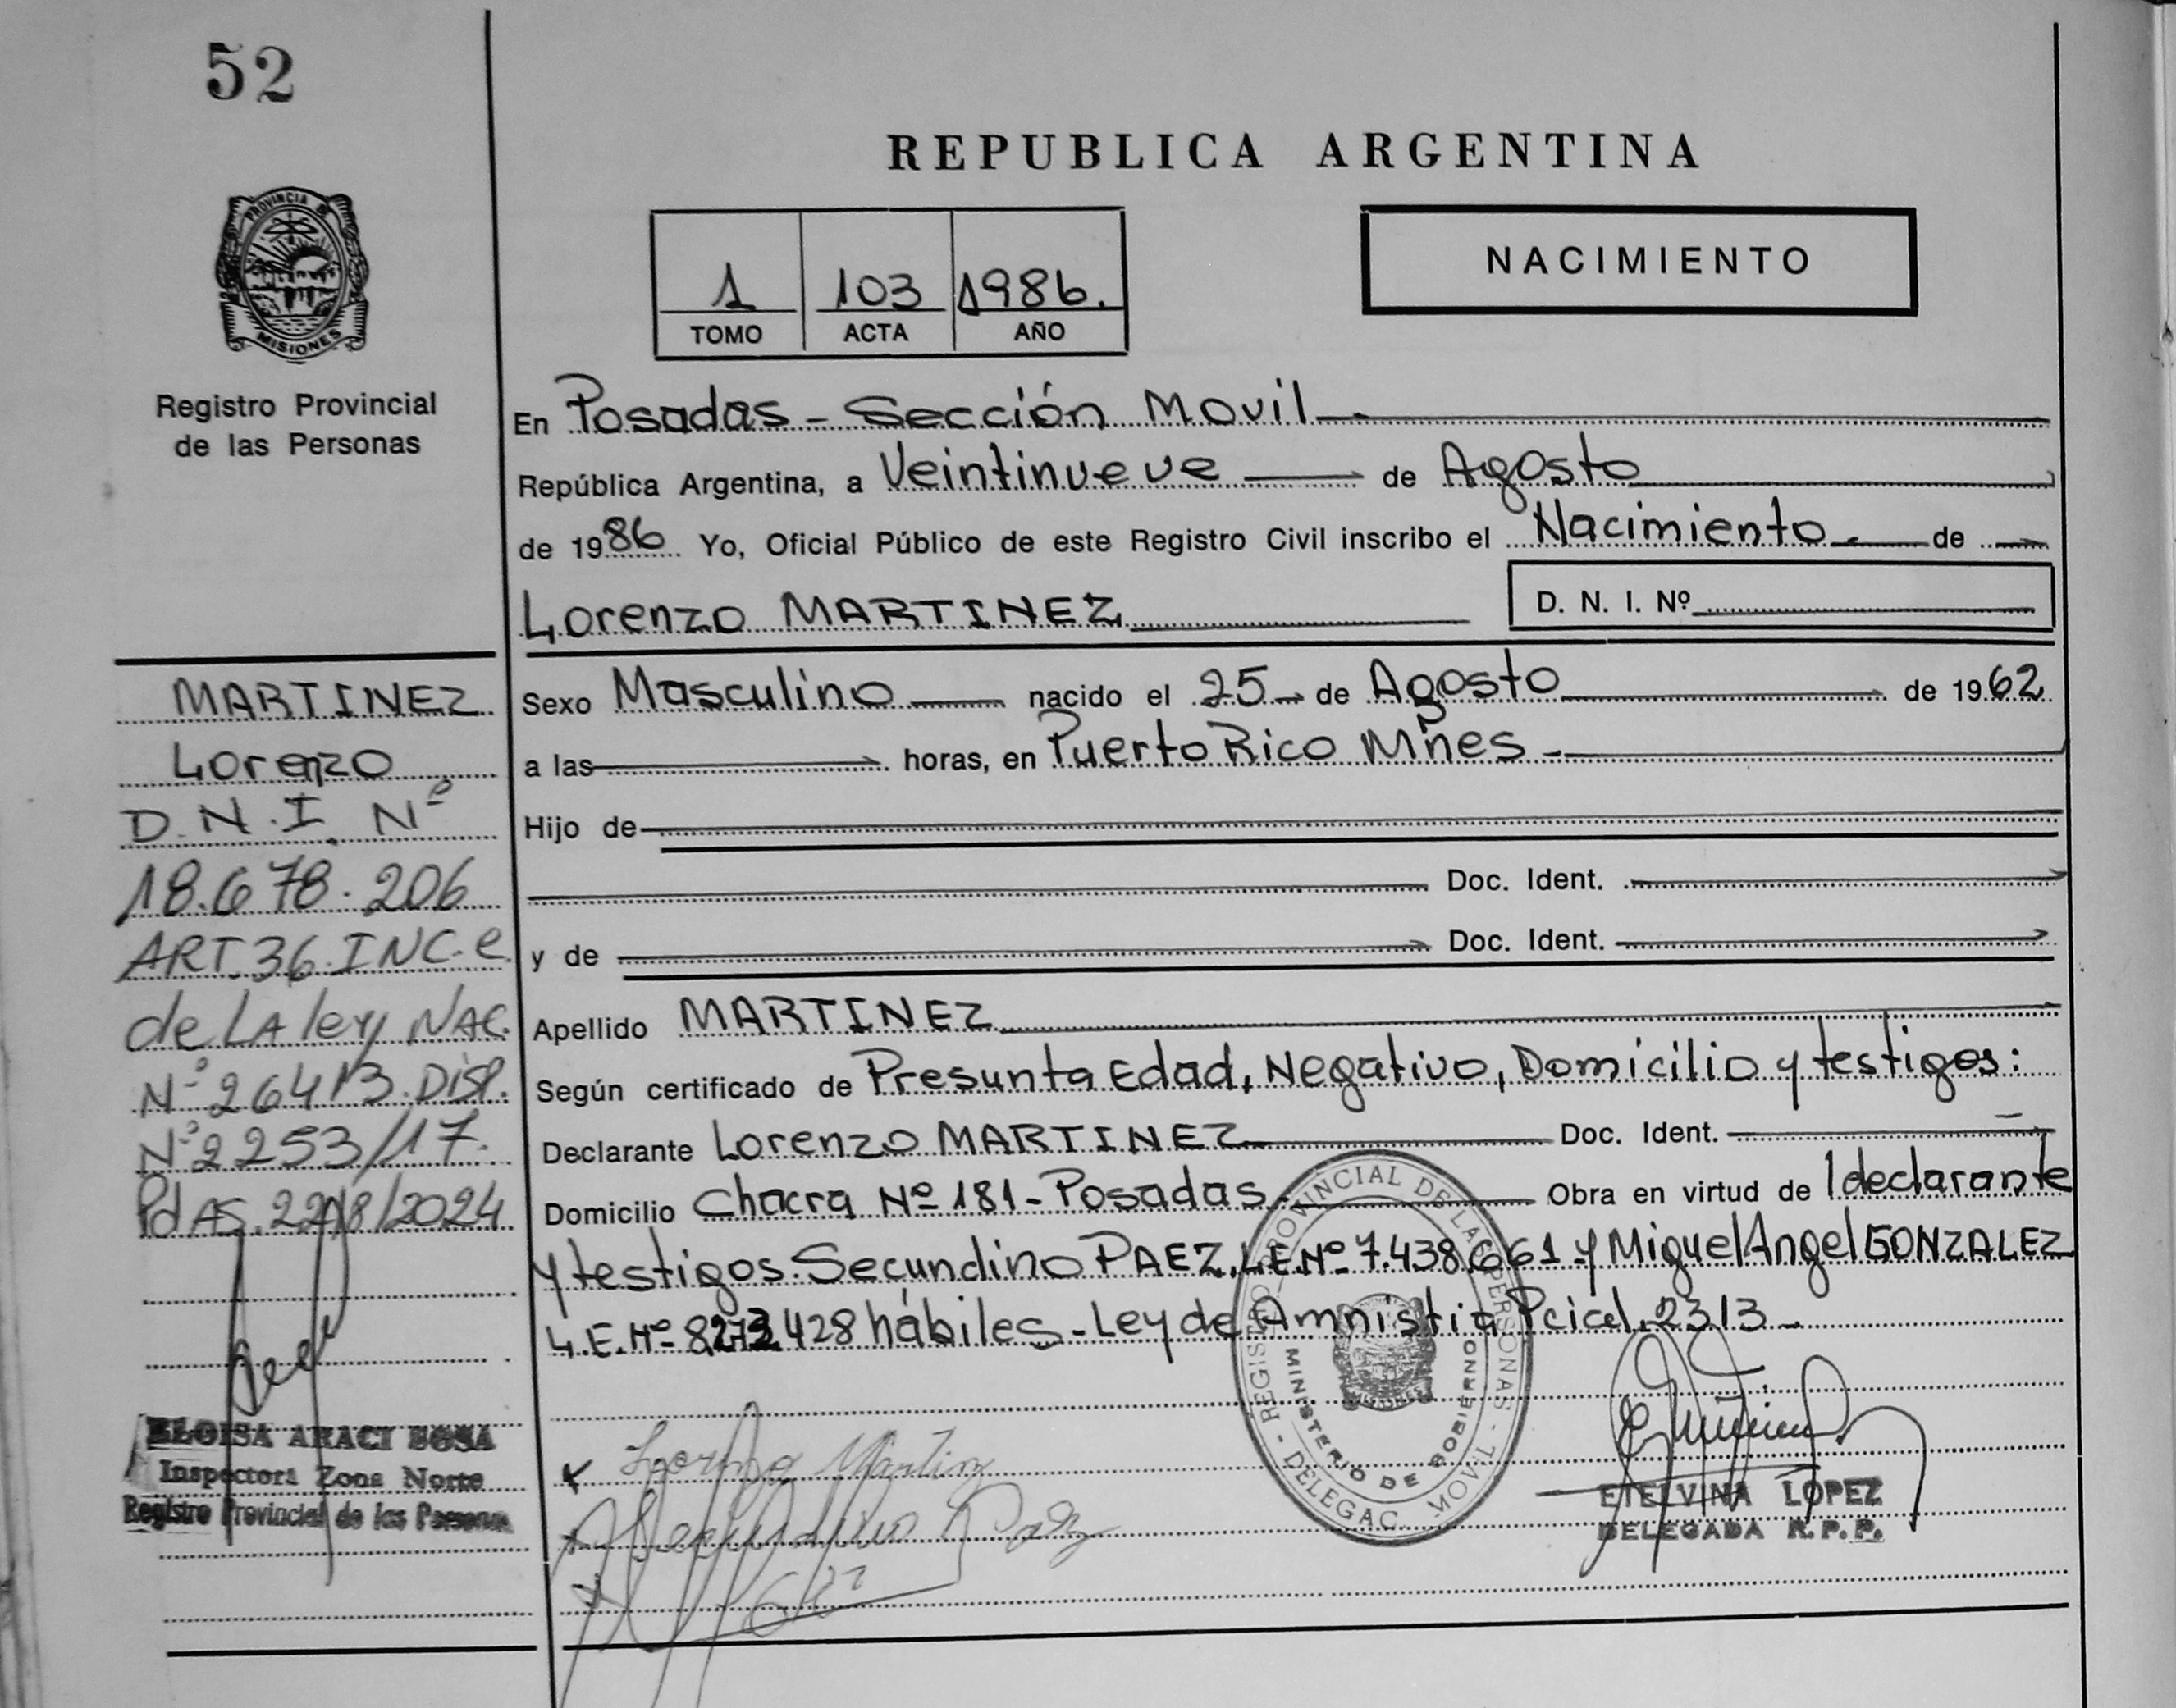 52
REPUBLICA ARGENTINA
PROVINCIA DE
MISIONES
Registro Provincial
de las Personas
1 103 1986.
TOMO ACTA AÑO
NACIMIENTO
En Posadas - Sección Movil
República Argentina, a Veintinueve de Agosto
de 1986 Yo, Oficial Público de este Registro Civil inscribo el Nacimiento de
Lorenzo MARTINEZ
D. N. I. Nº
Sexo Masculino nacido el 25 de Agosto de 1962
a las horas, en Puerto Rico Mñes -
Hijo de
Doc. Ident.
y de Doc. Ident.
Apellido MARTINEZ
Según certificado de Presunta Edad, Negativo, Domicilio y testigos:
Declarante Lorenzo MARTINEZ Doc. Ident.
Domicilio Chacra Nº 181 - Posadas Obra en virtud de declarante
y testigos. Secundino PAEZ, L.E.Nº 7.438.661 y Miguel Angel GONZALEZ
L.E.Nº 428 hábiles - Ley de Amnistia Pcial. 2313 -
MARTINEZ
Lorenzo
D.N.I. Nº
18.678.206
ART.36.INC.e
de LA ley NAC.
Nº 26413.Disp.
Nº 2253/17.
Pd AS. /8/2024
ELOISA ARACI BOSA
Inspectora Zona Norte
Registro Provincial de las Personas
REGISTRO PROVINCIAL DE LAS PERSONAS - DELEGAC. MOVIL -
MINISTERIO DE GOBIERNO
Martinz
Secundino Paez
ETELVINA LOPEZ
DELEGADA R.P.P.